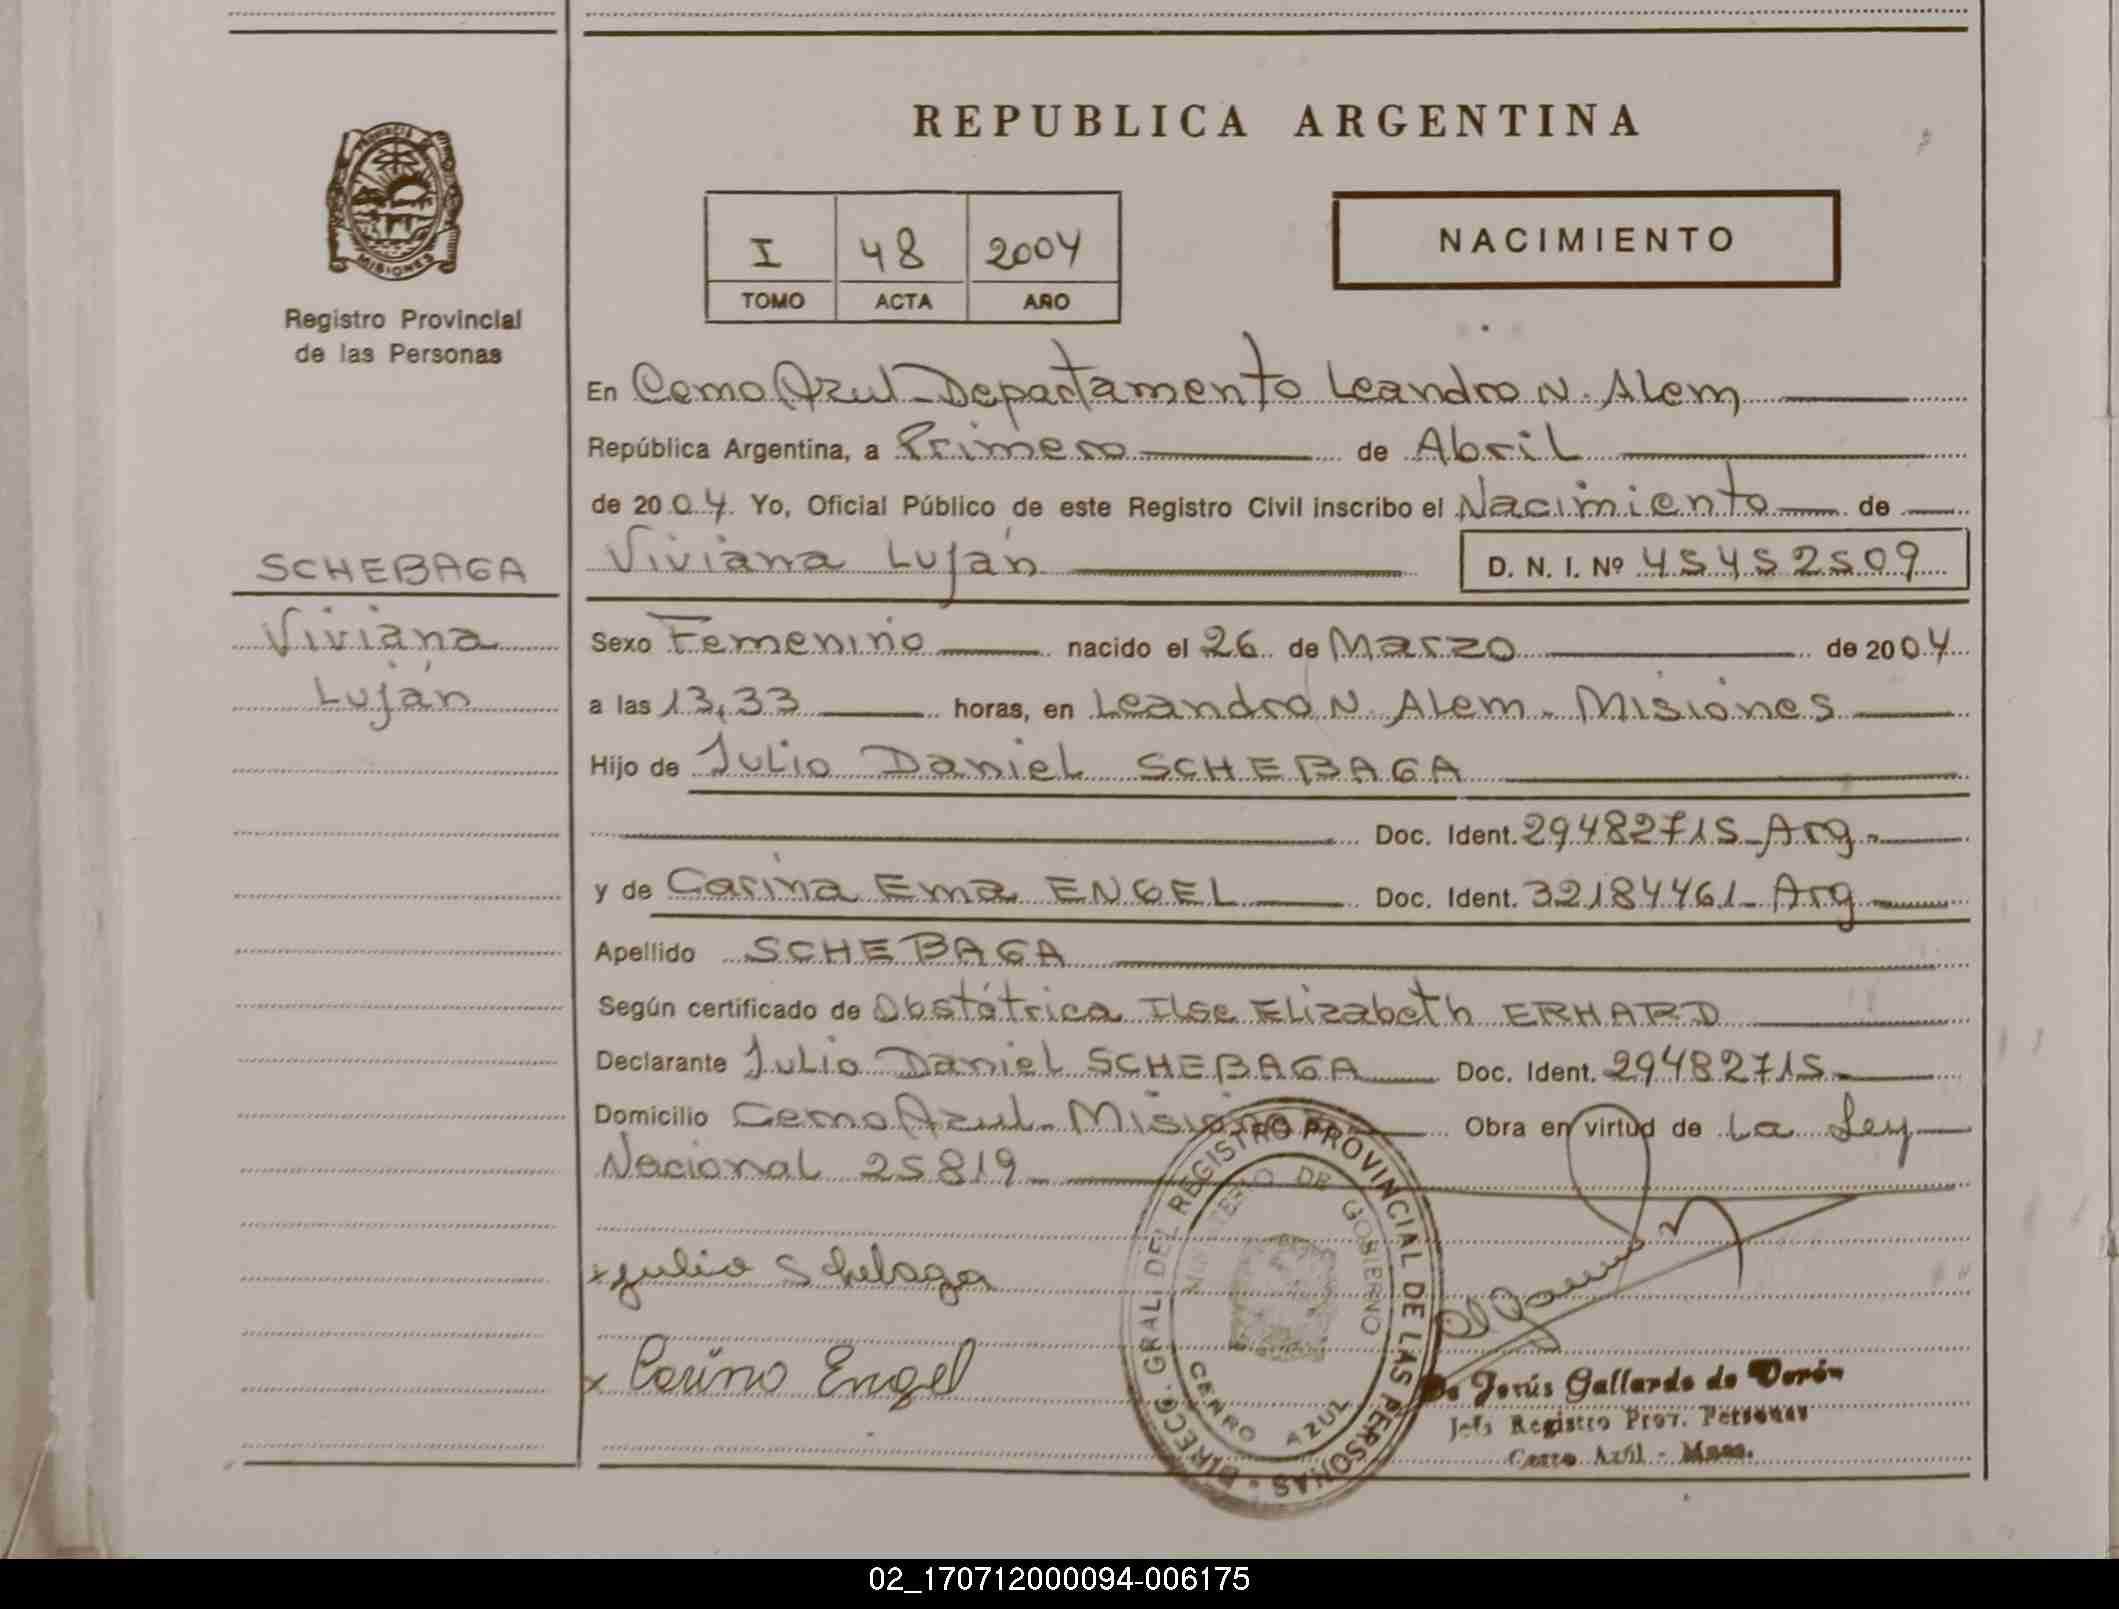 PROVINCIA
MISIONES
Registro Provincial
de las Personas
SCHEBAGA
Viviana
Luján
REPUBLICA ARGENTINA
I 48 2004
TOMO ACTA AÑO
NACIMIENTO
En Cerro Azul - Departamento Leandro N. Alem
República Argentina, a Primero de Abril
de 2004 Yo, Oficial Público de este Registro Civil inscribo el Nacimiento de
Viviana Luján D. N. I. Nº 45452509
Sexo Femenino nacido el 26 de Marzo de 2004
a las 13,33 horas, en Leandro N. Alem - Misiones
Hijo de Julio Daniel SCHEBAGA
Doc. Ident. 29482715 - Arg.-
y de Carina Ema ENGEL Doc. Ident. 32184461 - Arg
Apellido SCHEBAGA
Según certificado de Obstétrica Ilse Elizabeth ERHARD
Declarante Julio Daniel SCHEBAGA Doc. Ident. 29482715 -
Domicilio Cerro Azul - Misiones Obra en virtud de La Ley
Nacional 25819 -
x Julio Schebaga
x Carina Engel
DIRECC. GRAL. DEL REGISTRO PROVINCIAL DE LAS PERSONAS
MINISTERIO DE GOBIERNO
CERRO AZUL
de Jesús Gallardo de Verón
Jefa Registro Prov. Personas
Cerro Azul - Mnes.
02_170712000094-006175